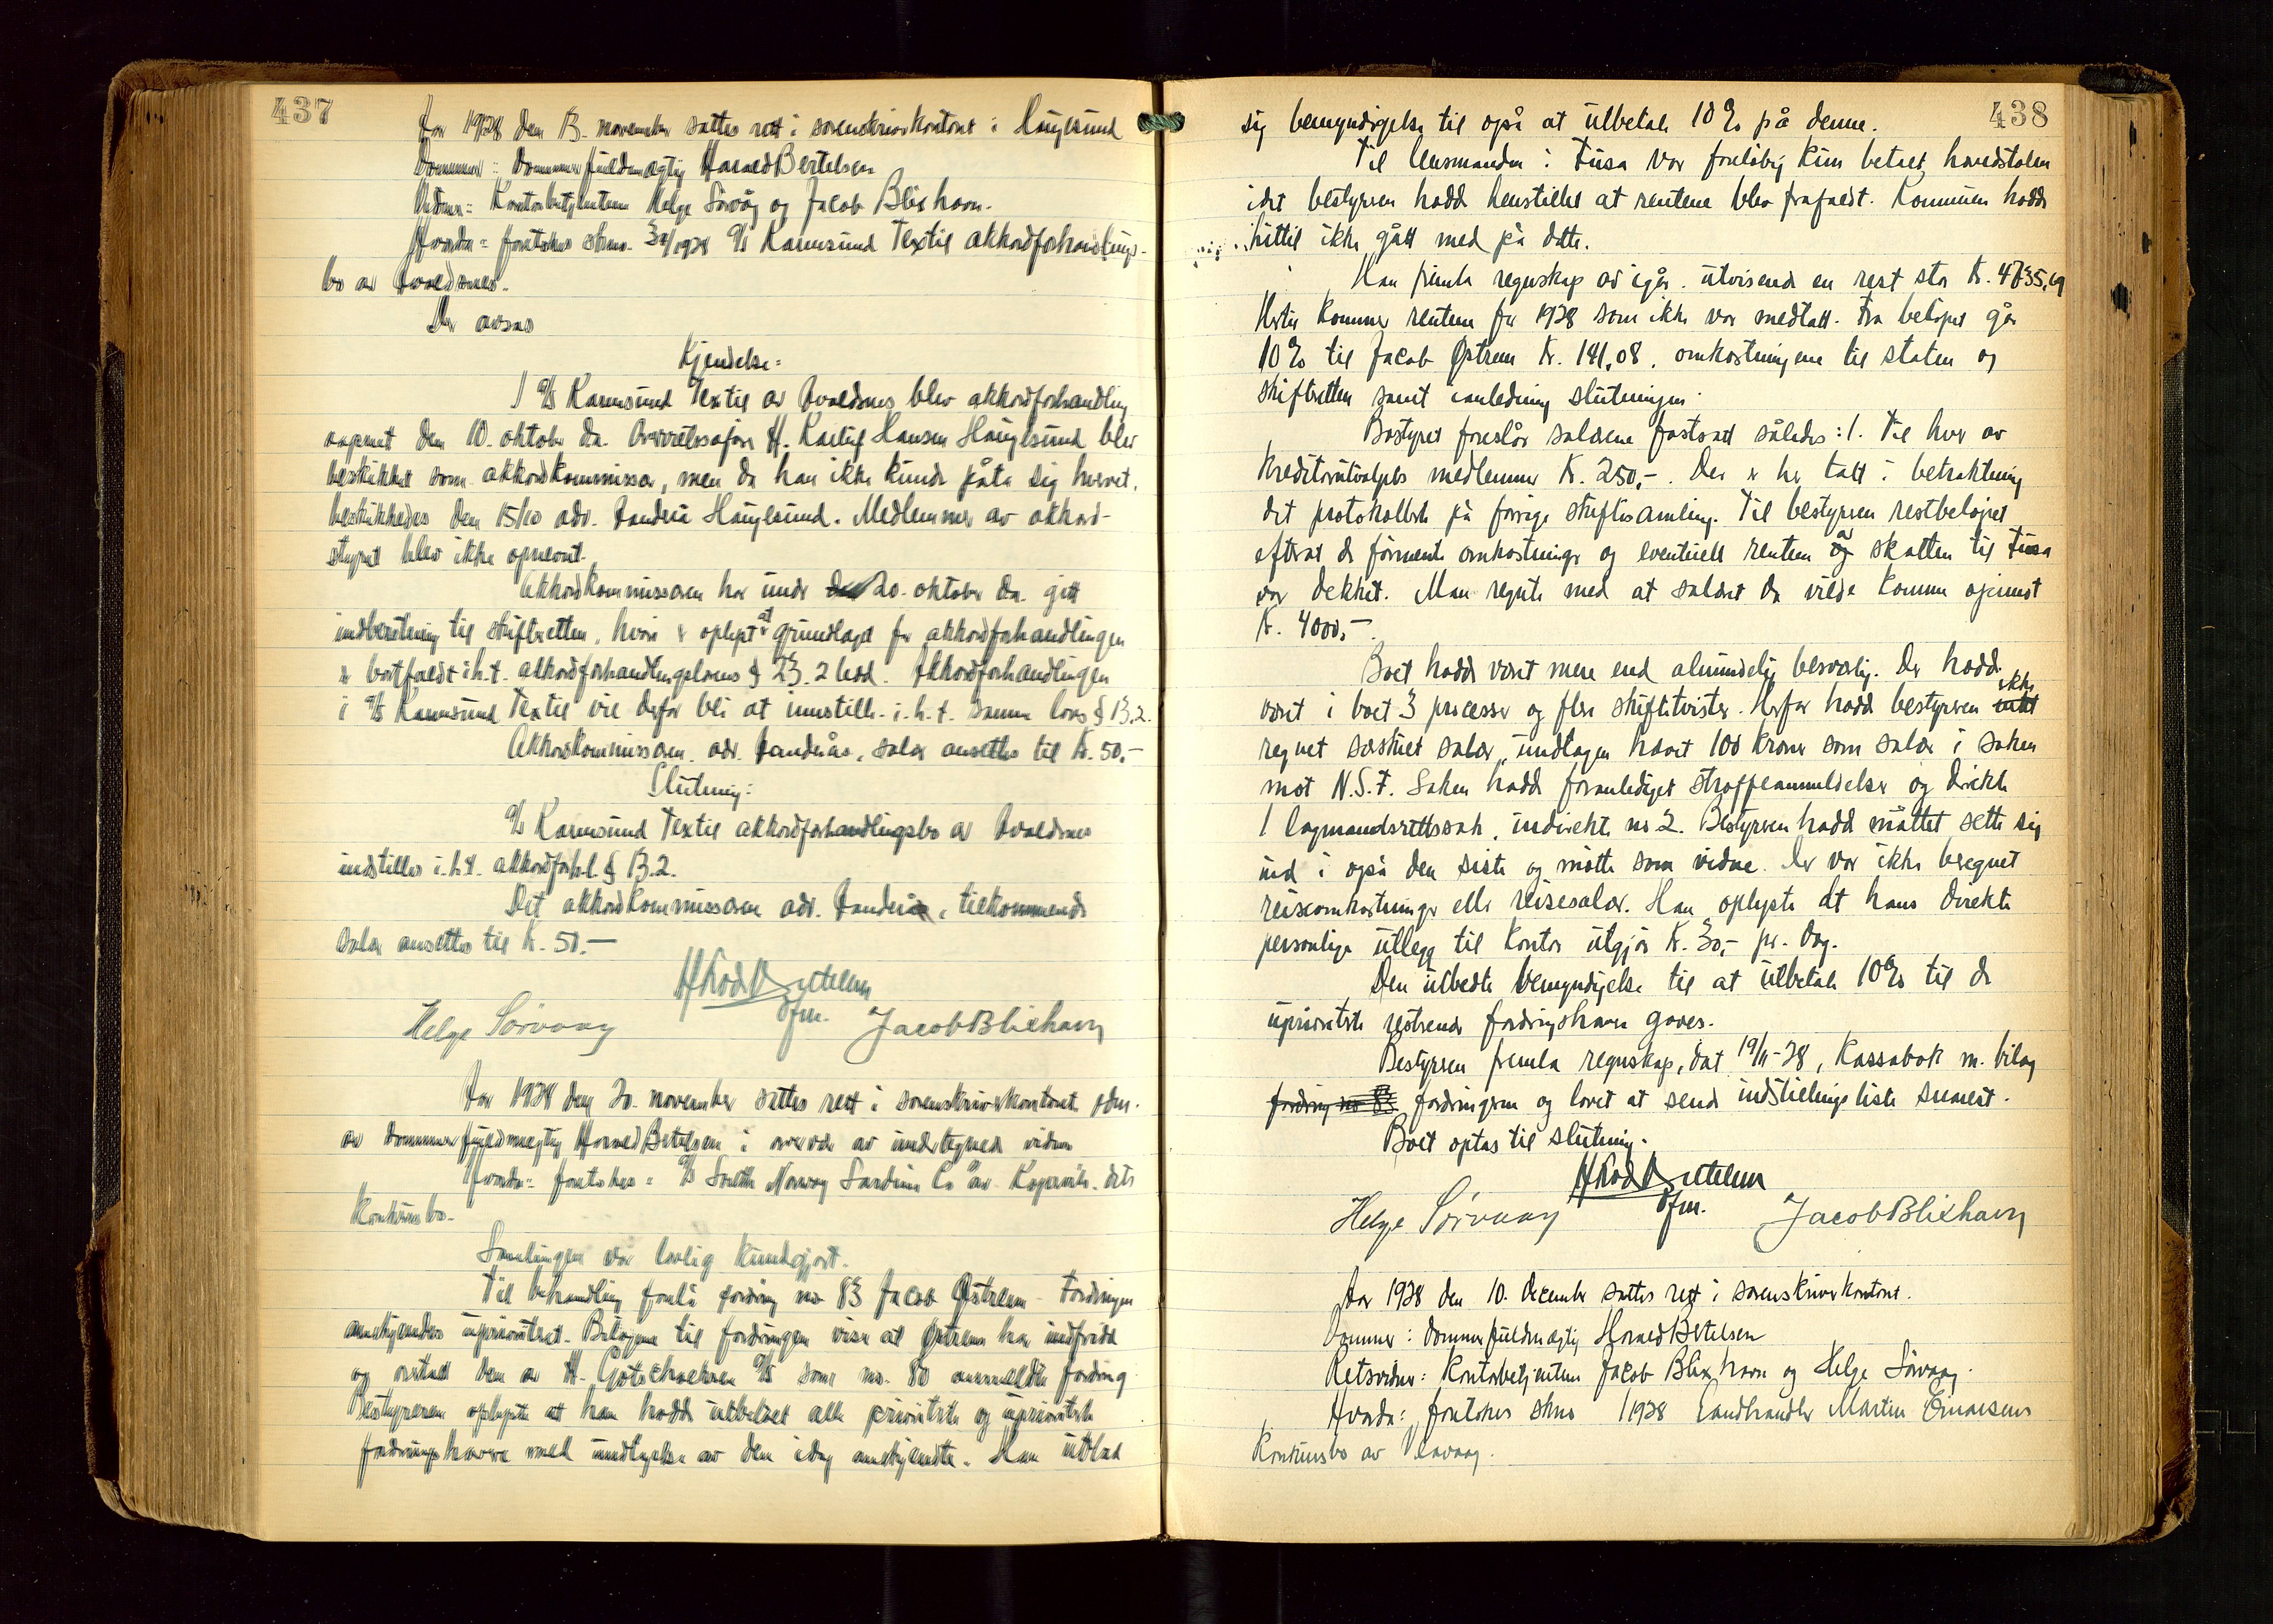 437
Aar 1938 den 13. november sattes rett i sorenskriverkontoret i Haugesund
Dommer: Dommerfuldmægtig Harald Bertelsen
Vidner: Kontorbetjentene Helge Sørvåg og Jacob Blixhavn.
Hvorda: foretokes skno. /1938 A/S Karmsund Textil akkordforhandlings-
bo av Avaldsnes.
Der avsas
Kjendelse:
I A/S Karmsund Textil av Avaldsnes blev akkordforhandling
aapnet den 10. oktober da. Overretssakfører H. Hansen Haugesund blev
beskikket som akkordkommissær, men da han ikke kunde påta sig hvervet,
beskikkedes den 15/10 adv. Haugesund. Medlemmer av akkord-
styret blev ikke opnevnt.
Akkordkommissæren har under den 20. oktober da. gitt
indberetning til skifteretten, hvori er oplyst at grundlaget for akkordforhandlingen
er bortfaldt i.h.t. akkordforhandlingslovens § 23. 2 ledd. Akkordforhandlingen
i A/S Karmsund Textil vil derfor bli at innstille i.h.t. samme lovs § 13.2.
Akkordkommissæren, adv. salær ansettes til Kr. 50,-
Slutning:
A/S Karmsund Textil akkordforhandlingsbo av Avaldsnes
indstilles i.h.t. akkordforh.l. § 13.2.
Det akkordkommissæren adv. tilkommende
salær ansettes til Kr. 50.-
Harald Bertelsen
dfm.
Helge Sørvaag Jacob Blixhavn
Aar 1938 den 20. november sattes rett i sorenskriverkontoret
av dommerfuldmægtig Harald Bertelsen i overvær av undertegnede vidner
Hvorda: foretokes: A/S South Norway Sardine Co av Kopervik. dets
Konkursbo.
Samlingen var lovlig kundgjort.
Til behandling forelå fordring no 83 Jacob Østrem. Fordringen
anerkjendes uprioritert. Bilagene til fordringen viser at Østrem har indfridd
og den av H. A/S som no. 80 anmeldte fordring
Bestyreren oplyste at han hadde utbetalt alle prioriterte og uprioriterte
fordringshavere med undtagelse av den idag anerkjendte. Han utbad
438
sig bemyndigelse til også at utbetale 10% på denne.
Til lensmanden i Fusa var foreløbig kun betalt hovedstolen
idet bestyreren hadde henstillet at rentene blev frafaldt. Kommunen hadde
hittil ikke gått med på dette.
Han fremla regnskap av igår, utvisende en rest stor Kr. 4735,19
Hertil kommer rentene for 1938 som ikke var medtatt. Fra beløpet går
10% til Jacob Østrem Kr. 141,08, omkostningene til staten og
skifteretten samt i anledning slutningen.
Bostyret foreslår salærene fastsatt således: 1. Til hver av
Kreditorutvalgets medlemmer Kr. 250,-. Der er her tatt i betraktning
det protokollerte på forrige skiftesamling. Til bestyreren restbeløpet
efterat de førnevnte omkostninger og eventuell rentene og av skatten til Fusa
var dekket. Man regnte med at salæret da vilde komme opimot
Kr. 4000,-.
Boet hadde været mere end almindelig besværlig. Der hadde
været i boet 3 processer og flere skiftetvister. Herfor hadde bestyreren intet ikke
regnet særskilt salær, undtagen hævet 100 kroner som salær i saken
mot N.S.F. Saken hadde foranlediget straffeanmeldelser og direkte
1 lagmandsrettssak, indirekte no 2. Bestyreren hadde måttet sette sig
ind i også den siste og møtte som vidne. Der var ikke beregnet
reiseomkostninger eller reisesalær. Han oplyste at hans direkte
personlige utlegg til kontor utgjør Kr. 30,- pr. dag.
Den utbedte bemyndigelse til at utbetale 10% til de
uprioriterte resterende fordringshavere gaves.
Bestyreren fremla regnskap, dat 19/11-38, Kassabok m. bilag
fordring no 83 fordringene og lovet at sende indstillingsliste snarest.
Boet optas til slutning.
Harald Bertelsen
dfm.
Helge Sørvaag Jacob Blixhavn
Aar 1938 den 10. december sattes rett i sorenskriverkontoret.
Dommer: dommerfuldmægtig Harald Bertelsen
Retsvidner: Kontorbetjentene Jacob Blixhavn og Helge Sørvaag.
Hvorda: foretokes skno /1938 Landhandler Martin Einarsens
Konkursbo av Vedavaag.